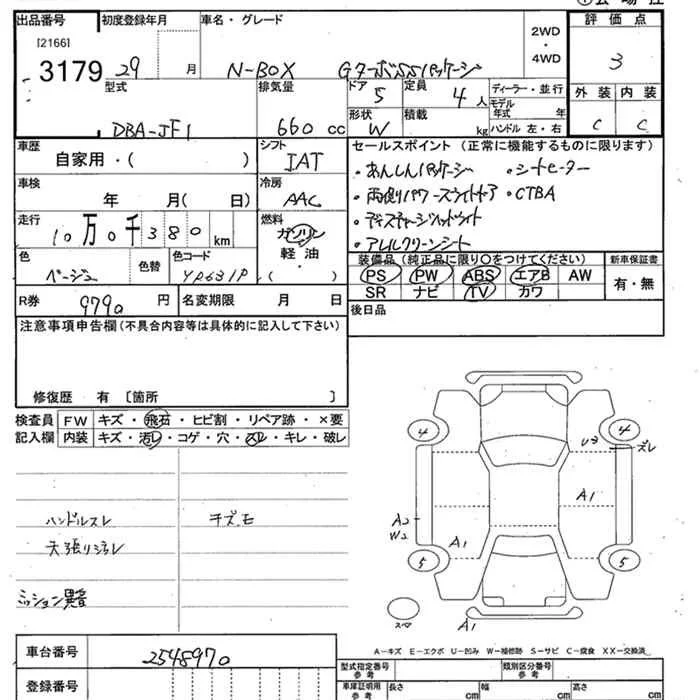 出品番号 初度登録年月 車名・グレード 評価点
[2166]
3179 29 月 N-BOX GターボSSパッケージ 2WD・4WD 3
型式 排気量 ドア 定員 ディーラー・並行 外装 内装
5 4人 モデル年式 年
形状 積載
DBA-JF1 660 cc W kg ハンドル 左・右 C C
車歴 シフト セールスポイント (正常に機能するものに限ります)
自家用・( ) IAT ・あんしんパッケージ ・シートヒーター
車検 冷房 ・両側パワースライドドア ・CTBA
年 月( 日) AAC ・ディスチャージヘッドライト
走行 燃料 ・アレルクリーンシート
10万0千380km ガソリン
軽油
色 色替 色コード ( ・ ) 装備品 (純正品に限り○をつけてください) 新車保証書
ベージュ YR631P PS PW ABS エアB AW 有・無
R券 円 名変期限 月 日 SR ナビ TV カワ
9790 後日品
注意事項申告欄(不具合内容等は具体的に記入して下さい)
修復歴 有 [箇所 ]
検査員 FW キズ・飛石・ヒビ割・リペア跡・×要
記入欄 内装 キズ・汚レ・コゲ・穴・スレ・キレ・破レ
ハンドルスレ チズモ
天張リヨゴレ
ミッション異音
4 4
U3 ズレ
A1
A2
W2 A1
5 5
スペア A1
A-キズ E-エクボ U-凹み W-補修跡 S-サビ C-腐食 XX-交換済
車台番号 2548970 型式指定番号 参考 類別区分番号 参考
登録番号 車庫証明用 参考 長さ cm 幅 cm 高さ cm